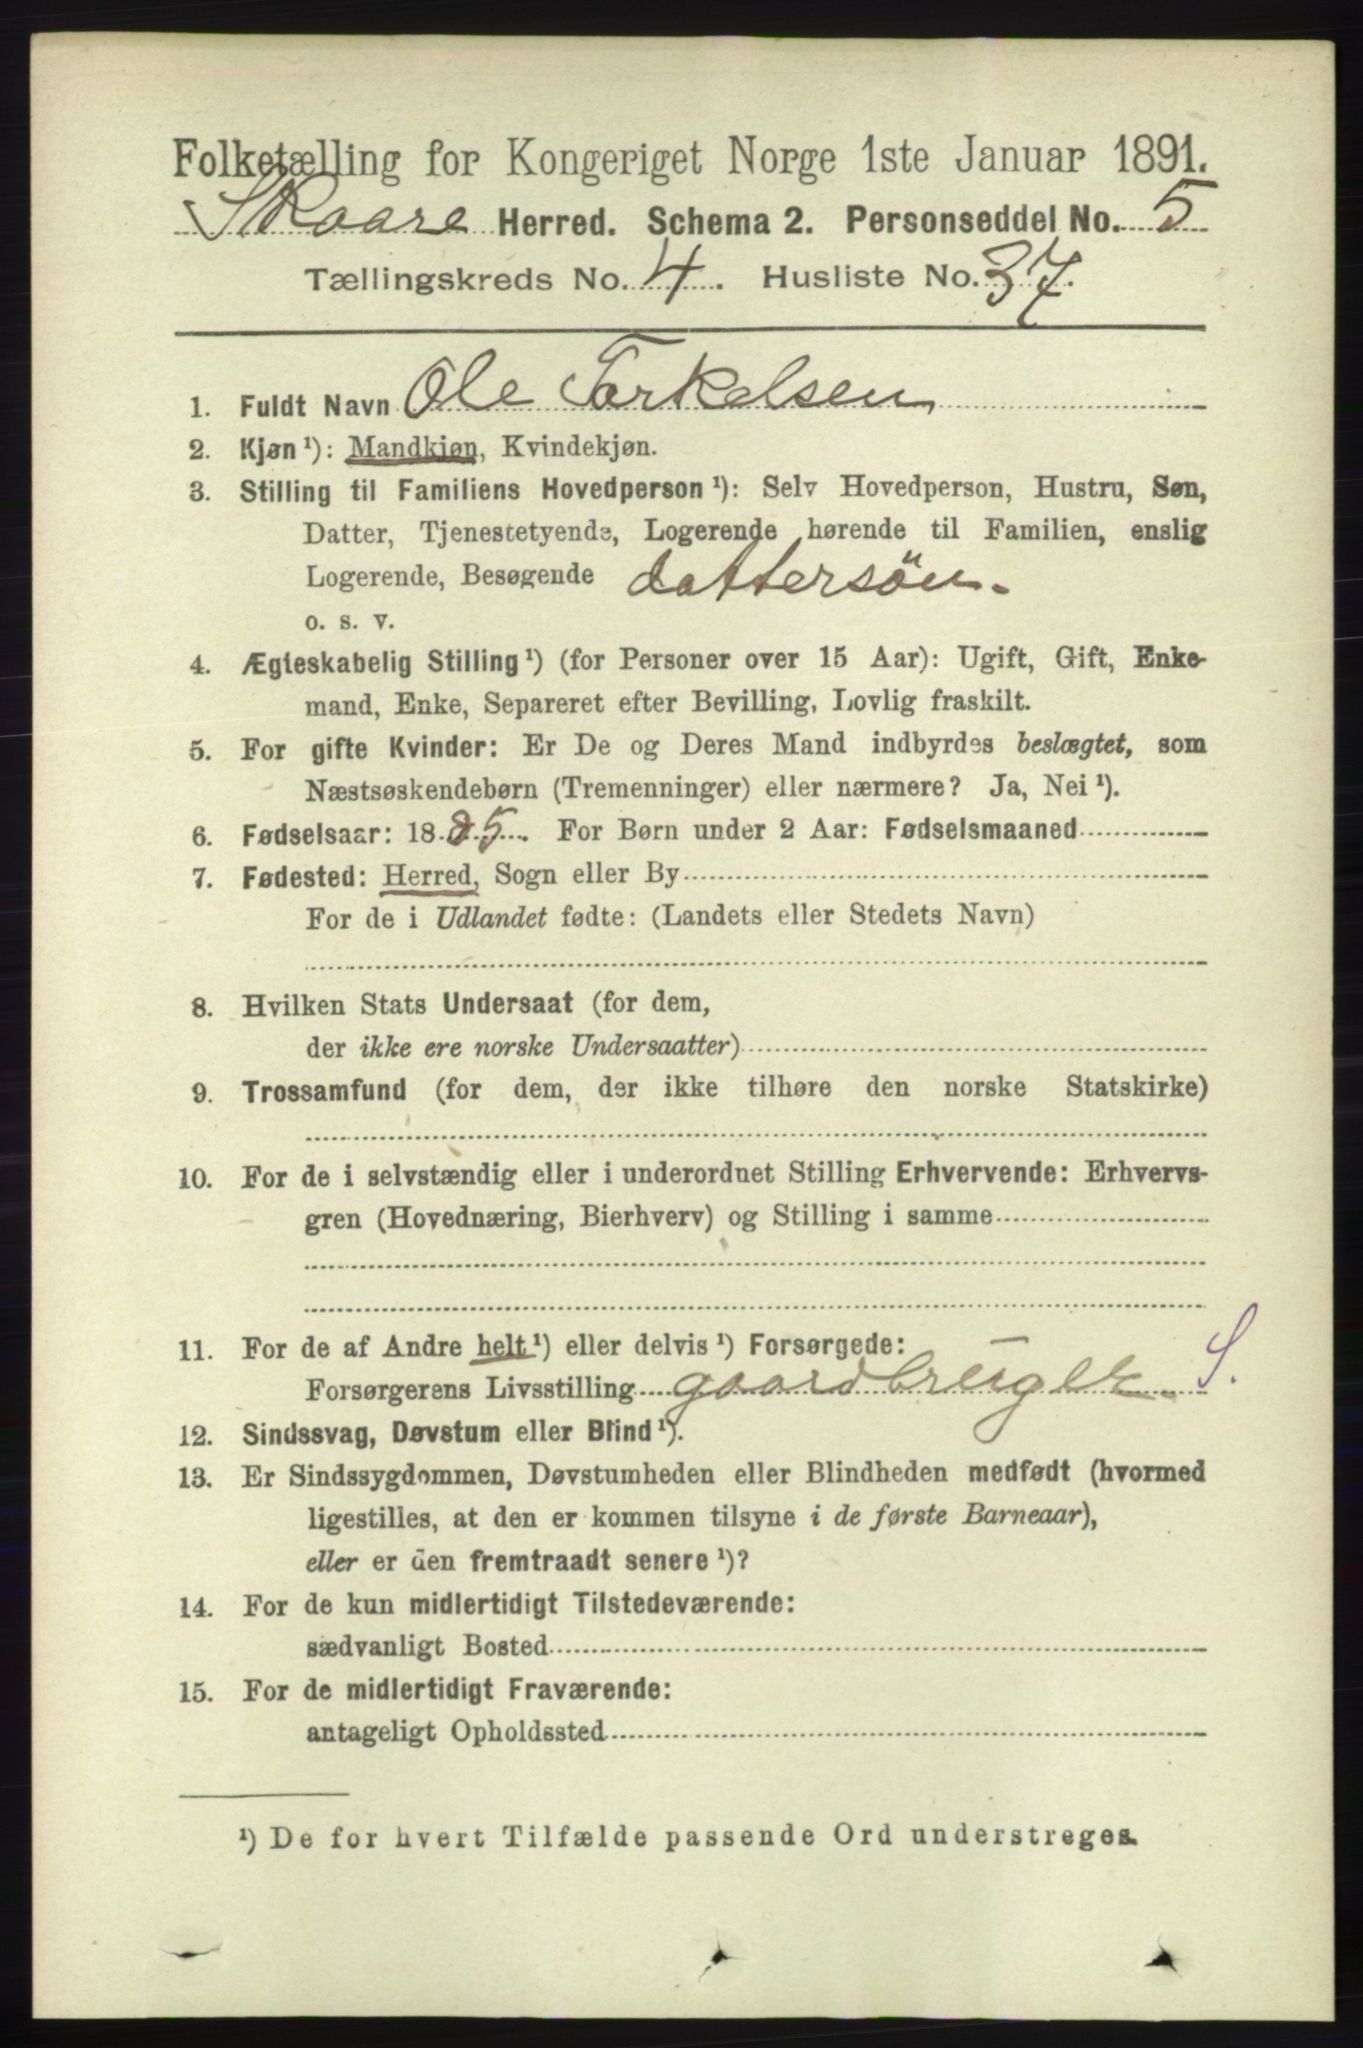 Folketælling for Kongeriget Norge 1ste Januar 1891.
Skaare Herred. Schema 2. Personseddel No. 5
Tællingskreds No. 4. Husliste No. 37.
1. Fuldt Navn Ole Torkelsen
2. Kjøn¹): Mandkjøn, Kvindekjøn.
3. Stilling til Familiens Hovedperson¹): Selv Hovedperson, Hustru, Søn,
Datter, Tjenestetyende, Logerende hørende til Familien, enslig
Logerende, Besøgende dattersön.
o. s. v.
4. Ægteskabelig Stilling¹) (for Personer over 15 Aar): Ugift, Gift, Enke-
mand, Enke, Separeret efter Bevilling, Lovlig fraskilt.
5. For gifte Kvinder: Er De og Deres Mand indbyrdes beslægtet, som
Næstsøskendebørn (Tremenninger) eller nærmere? Ja, Nei¹).
6. Fødselsaar: 1885. For Børn under 2 Aar: Fødselsmaaned
7. Fødested: Herred, Sogn eller By
For de i Udlandet fødte: (Landets eller Stedets Navn)
8. Hvilken Stats Undersaat (for dem,
der ikke ere norske Undersaatter)
9. Trossamfund (for dem, der ikke tilhøre den norske Statskirke)
10. For de i selvstændig eller i underordnet Stilling Erhvervende: Erhvervs-
gren (Hovednæring, Bierhverv) og Stilling i samme
11. For de af Andre helt¹) eller delvis¹) Forsørgede:
Forsørgerens Livsstilling gaardbruger S.
12. Sindssvag, Døvstum eller Blind¹).
13. Er Sindssygdommen, Døvstumheden eller Blindheden medfødt (hvormed
ligestilles, at den er kommen tilsyne i de første Barneaar),
eller er den fremtraadt senere¹)?
14. For de kun midlertidigt Tilstedeværende:
sædvanligt Bosted
15. For de midlertidigt Fraværende:
antageligt Opholdssted
¹) De for hvert Tilfælde passende Ord understreges.